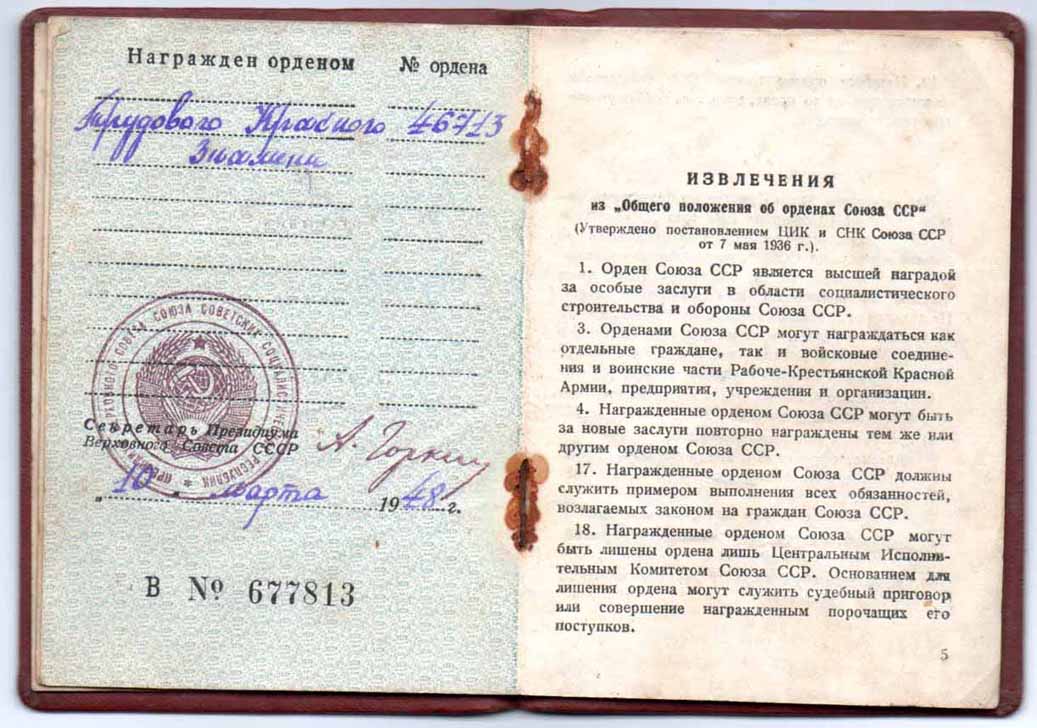 Награжден орденом № ордена
Трудового Красного 46713
Знамени
ВЕРХОВНОГО СОВЕТА СОЮЗА СОВЕТСКИХ СОЦИАЛИСТИЧЕСКИХ РЕСПУБЛИК
Секретарь Президиума
Верховного Совета СССР
А. Горкин
„ 10 “ марта 1948 г.
В № 677813
ИЗВЛЕЧЕНИЯ
из „Общего положения об орденах Союза ССР“
(Утверждено постановлением ЦИК и СНК Союза ССР
от 7 мая 1936 г.).
1. Орден Союза ССР является высшей наградой
за особые заслуги в области социалистического
строительства и обороны Союза ССР.
3. Орденами Союза ССР могут награждаться как
отдельные граждане, так и войсковые соедине-
ния и воинские части Рабоче-Крестьянской Красной
Армии, предприятия, учреждения и организации.
4. Награжденные орденом Союза ССР могут быть
за новые заслуги повторно награждены тем же или
другим орденом Союза ССР.
17. Награжденные орденом Союза ССР должны
служить примером выполнения всех обязанностей,
возлагаемых законом на граждан Союза ССР.
18. Награжденные орденом Союза ССР могут
быть лишены ордена лишь Центральным Исполни-
тельным Комитетом Союза ССР. Основанием для
лишения ордена могут служить судебный приговор
или совершение награжденным порочащих его
поступков.
5